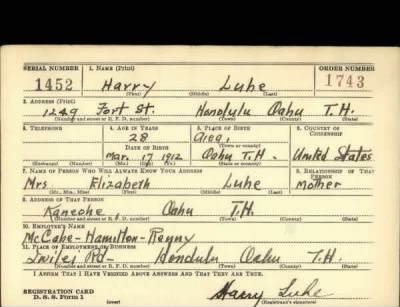 SERIAL NUMBER 1. NAME (Print) ORDER NUMBER
1452 Harry Luhe 1743
(First) (Middle) (Last)
2. ADDRESS (Print)
1249 Fort St. Honolulu Oahu T.H.
(Number and street or R. F. D. number) (Town) (County) (State)
3. TELEPHONE 4. AGE IN YEARS 5. PLACE OF BIRTH 6. COUNTRY OF CITIZENSHIP
28 Aiea,
DATE OF BIRTH (Town or county)
Mar. 17 1912 Oahu T.H. United States
(Exchange) (Number) (Mo.) (Day) (Yr.) (State or country)
7. NAME OF PERSON WHO WILL ALWAYS KNOW YOUR ADDRESS 8. RELATIONSHIP OF THAT PERSON
Mrs Elizabeth Luhe mother
(Mr., Mrs., Miss) (First) (Middle) (Last)
9. ADDRESS OF THAT PERSON
Kaneohe Oahu T.H.
(Number and street or R. F. D. number) (Town) (County) (State)
10. EMPLOYER'S NAME
McCabe-Hamilton-Renny
11. PLACE OF EMPLOYMENT OR BUSINESS
Iwilei Rd- Honolulu Oahu T.H.
(Number and street or R. F. D. number) (Town) (County) (State)
I AFFIRM THAT I HAVE VERIFIED ABOVE ANSWERS AND THAT THEY ARE TRUE.
REGISTRATION CARD
D. S. S. Form 1 (over) Harry Luhe
(Registrant's signature)